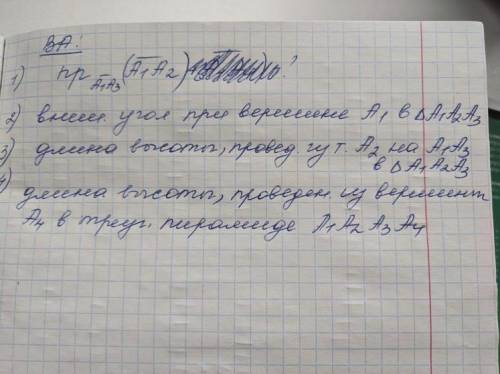 ВА:
1) пр A̅1A̅3 (A̅1A̅2) ?
2) внеш. угол при вершине А1 в ΔА1А2А3
3) длина высоты, провед. из т. А2 на А1А3
в ΔА1А2А3
4) длина высоты, проведен. из вершины
А4 в треуг. пирамиде А1А2А3А4